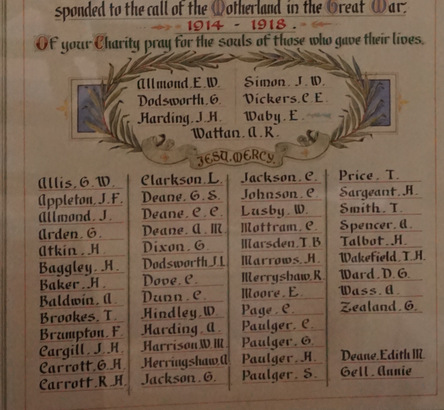 sponded to the call of the Motherland in the Great War.
1914 - 1918.
Of your Charity pray for the souls of those who gave their lives.
Allmond. E. W.
Dodsworth. G.
Harding. J. H.
Simon. J. W.
Vickers. C. E.
Waby. E.
Wattan. A. R.
JESU. MERCY.
Allis. G. W.
Appleton. J. F.
Allmond. J.
Arden. G.
Atkin. H.
Baggley. H.
Baker. H.
Baldwin. A.
Brookes. T.
Brumpton. F.
Cargill. J. H.
Carrott. G. H.
Carrott. R. H.
Clarkson. L.
Deane. G. S.
Deane. C. C.
Deane. A. M.
Dixon. G.
Dodsworth. J. L.
Dove. C.
Dunn. C.
Hindley. W.
Harding. A.
Harrison. W. M.
Herringshaw. A.
Jackson. G.
Jackson. C.
Johnson. C.
Lusby. W.
Mottram. C.
Marsden. T. B.
Marrows. H.
Merryshaw. R.
Moore. E.
Page. C.
Paulger. C.
Paulger. G.
Paulger. H.
Paulger. S.
Price. T.
Sargeant. H.
Smith. T.
Spencer. A.
Talbot. H.
Wakefield. T. H.
Ward. D. G.
Wass. A.
Zealand. G.
Deane. Edith M.
Gell. Annie